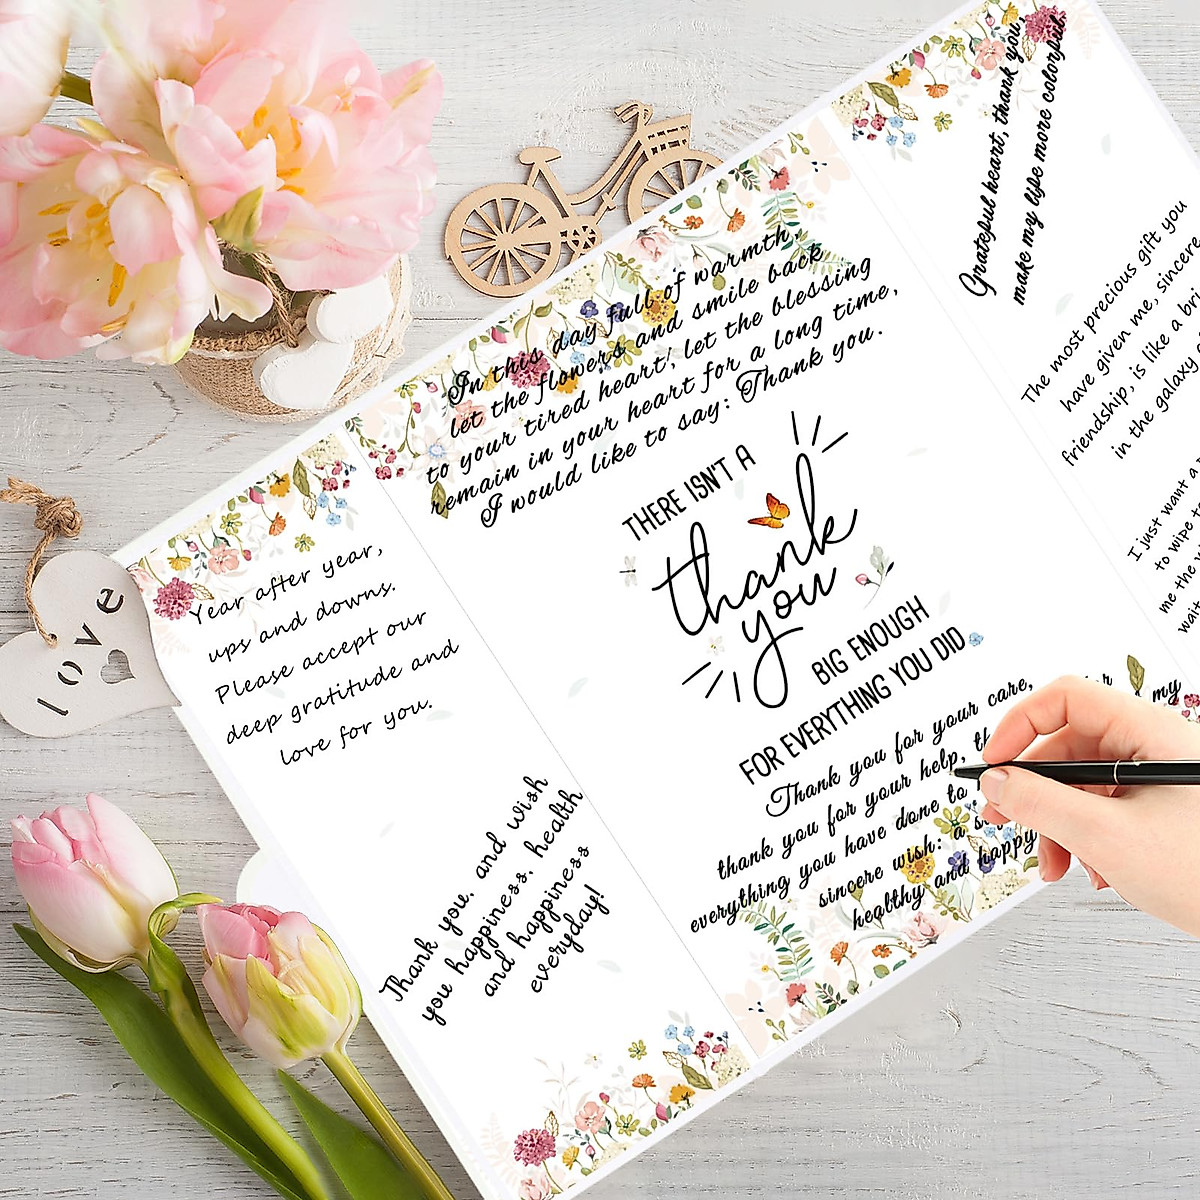 love
Year after year,
ups and downs.
Please accept our
deep gratitude and
love for you.
Thank you. and wish
you happiness, health
and happiness
everyday!
In this day full of warmth,
let the flowers and smile back
to your tired heart, let the blessing
remain in your heart for a long time,
I would like to say: Thank you.
THERE ISN'T A
thank
you
BIG ENOUGH
FOR EVERYTHING YOU DID
Thank you for your care, my
thank you for your help,
everything you have done to
sincere wish: a
healthy and happy
Grateful heart, thank you,
make my lype more colorful.
The most precious gift you
have given me, sincere
friendship, is like a
in the galaxy
I just want a
to wipe
me the
wait